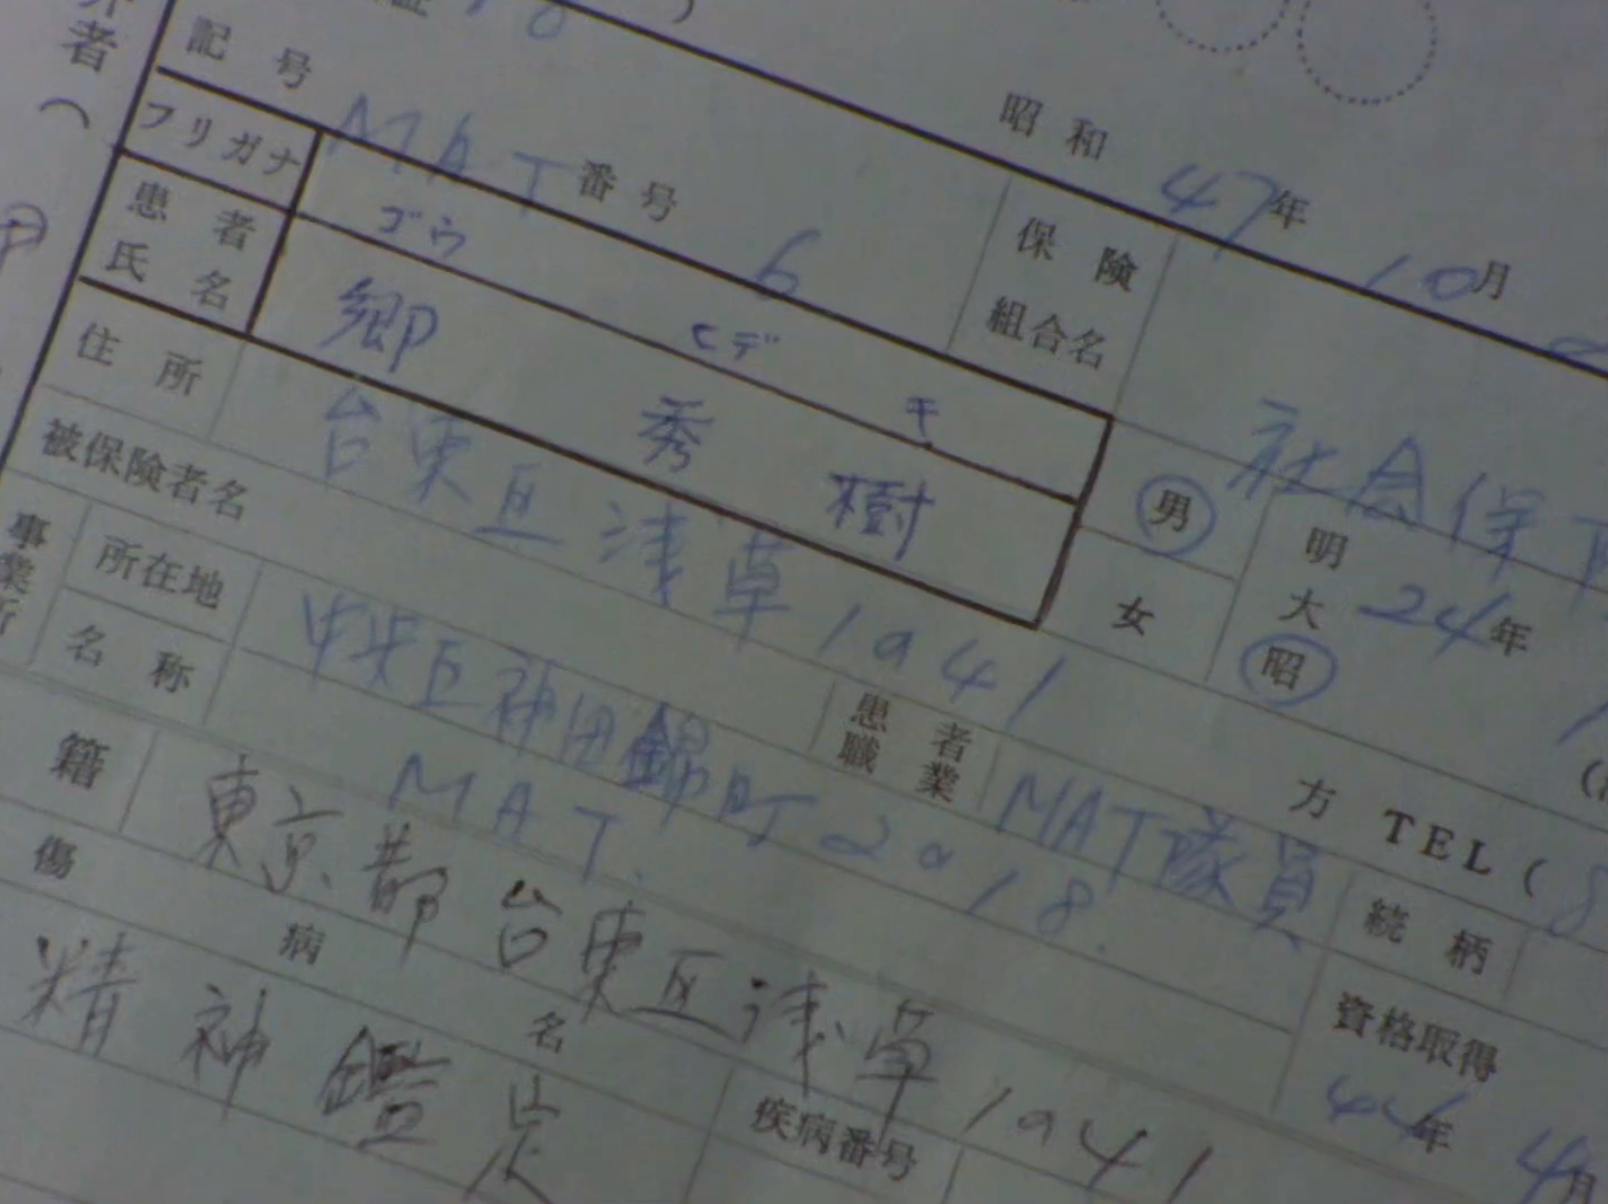 記号 MAT 番号 6
昭和 47年 10月
保険組合名 社会保
フリガナ ゴウ ヒデキ
患者氏名 郷 秀樹
男 女
明 大 昭 24年
住所 台東区浅草1941
方 TEL( 8
被保険者名
患者職業 MAT隊員
続柄
事業所
所在地 中央区神田錦町2018.
名称 MAT.
資格取得 44年 4月
籍 東京都台東区浅草1941
傷病名
疾病番号
精神鑑定